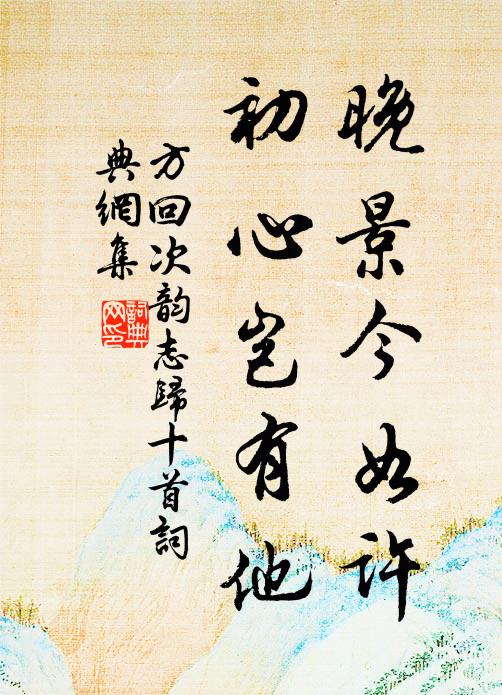 晚景今如許
初心豈有他
方回次韵志歸十首詞
典網集
詞典
网印